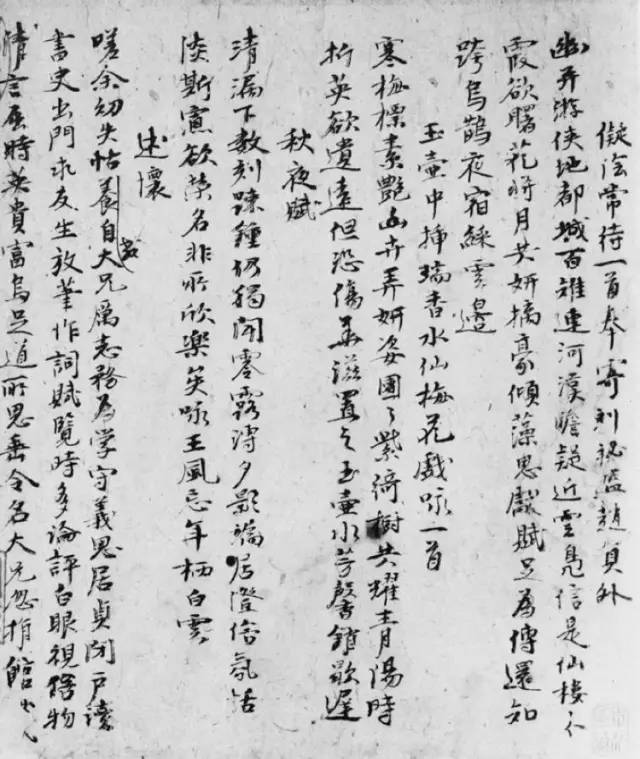 儗陰常待一首奉寄刘秘監趙員外
幽弄游俠地都城百雉連河漢瞻疑近雲是信是仙樓
霞欲曙花將月共妍摛豪傾藻思獻賦足為傳還知
跨烏鵲夜宿綵雲邊
玉壺中揷瑞香水仙梅花戲咏一首
寒梅標素艷幽卉弄妍姿團々紫綺樹共耀青陽時
折英欲遺遠但恐傷華滋置之玉壺水芳馨銷歇遲
秋夜賦
清漏下數刻踈鍾仍獨聞零露漙夕影端居澄俗氛恬
淡斯寡欲榮名非所欣樂矣咏王風忘年栖白雲
述懷
嗟余幼失怙教養自大兄厲志務為學守義思居貞閉戶讀
書史出門求友生放筆作詞賦覽時多論評白眼視俗物
清言屈時英貴富烏足道所思垂令名大兄忽捐館